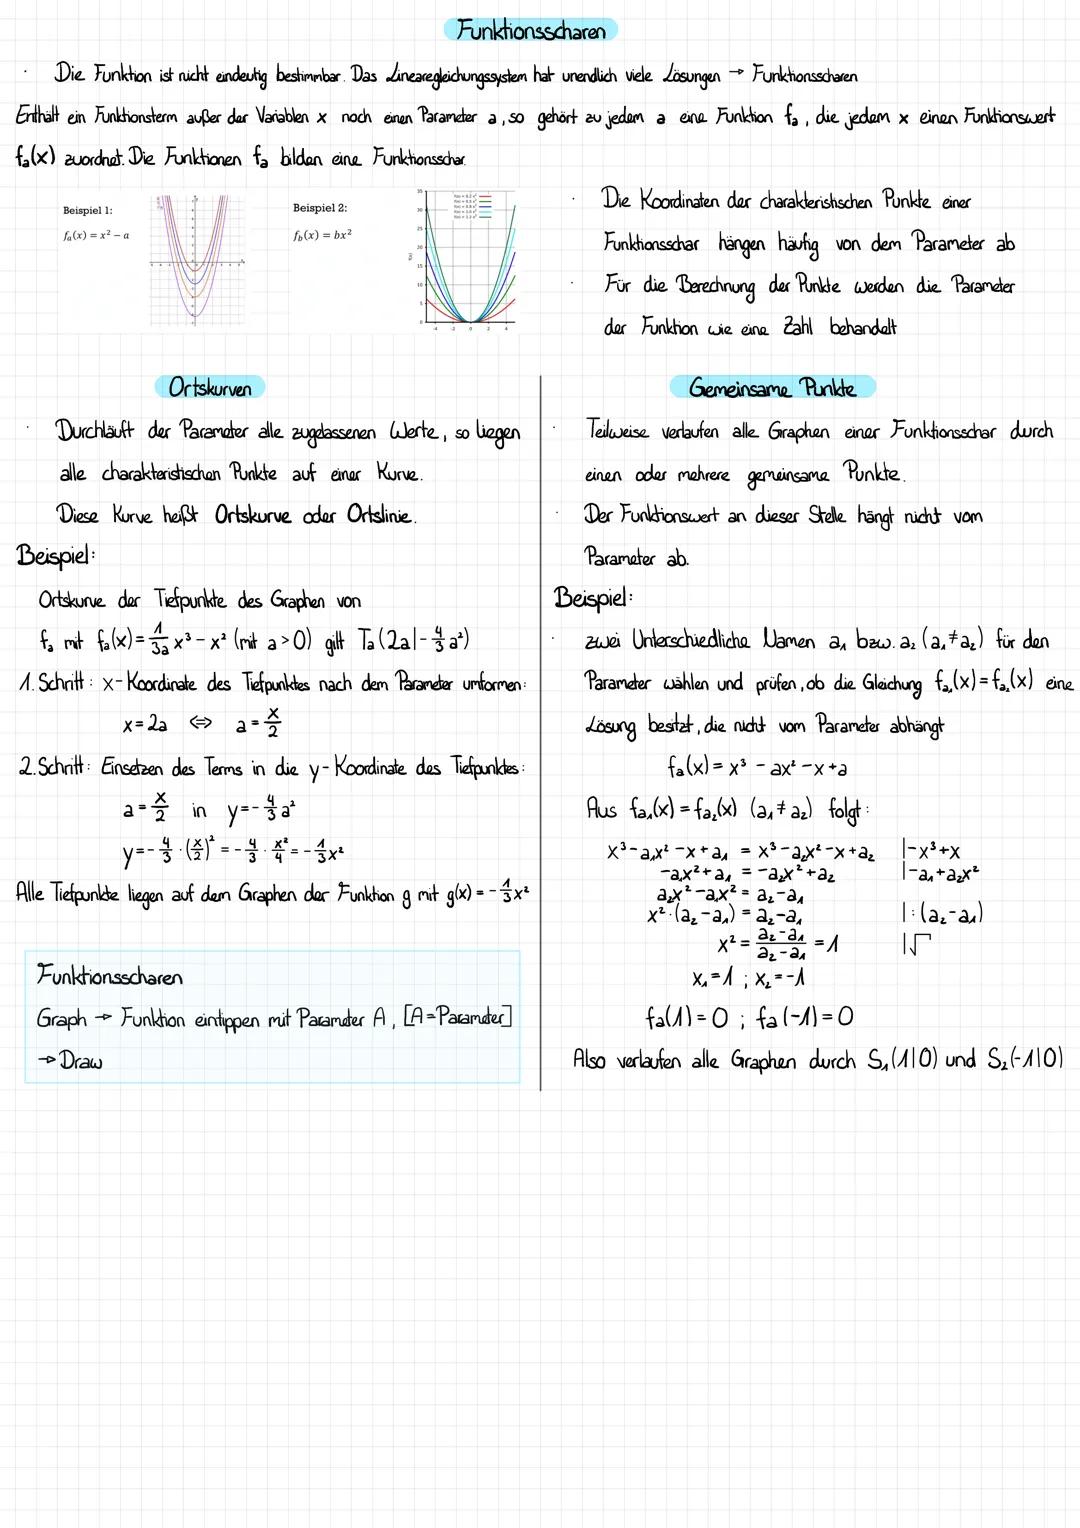 Funktionsscharen
· Die Funktion ist nicht eindeutig bestimmbar. Das Linearegleichungssystem hat unendlich viele Lösungen → Funktionsscharen
Enthält ein Funktionsterm außer der Variablen x noch einen Parameter a, so gehört zu jedem a eine Funktion fₐ, die jedem x einen Funktionswert
fₐ(x) zuordnet. Die Funktionen fₐ bilden eine Funktionsschar.
Beispiel 1:
fₐ(x) = x² − a
Beispiel 2:
f_b(x) = bx²
· Die Koordinaten der charakteristischen Punkte einer
Funktionsschar hängen häufig von dem Parameter ab
· Für die Berechnung der Punkte werden die Parameter
der Funktion wie eine Zahl behandelt
Ortskurven
· Durchläuft der Parameter alle zugelassenen Werte, so liegen
alle charakteristischen Punkte auf einer Kurve.
Diese Kurve heißt Ortskurve oder Ortslinie.
Beispiel:
Ortskurve der Tiefpunkte des Graphen von
fₐ mit fₐ(x) = 1/3a x³ − x² (mit a > 0) gilt Tₐ(2a|−4/3 a²)
1. Schritt: x-Koordinate des Tiefpunktes nach dem Parameter umformen:
x = 2a ⇔ a = x/2
2. Schritt: Einsetzen des Terms in die y-Koordinate des Tiefpunktes:
a = x/2 in y = −4/3 a²
y = −4/3 · (x/2)² = −4/3 · x²/4 = −1/3 x²
Alle Tiefpunkte liegen auf dem Graphen der Funktion g mit g(x) = −1/3 x²
Funktionsscharen
Graph → Funktion eintippen mit Parameter A, [A=Parameter]
→ Draw
Gemeinsame Punkte
· Teilweise verlaufen alle Graphen einer Funktionsschar durch
einen oder mehrere gemeinsame Punkte.
· Der Funktionswert an dieser Stelle hängt nicht vom
Parameter ab.
Beispiel:
· zwei Unterschiedliche Namen a₁ bzw. a₂ (a₁ ≠ a₂) für den
Parameter wählen und prüfen, ob die Gleichung fa₁(x) = fa₂(x) eine
Lösung besitzt, die nicht vom Parameter abhängt
fₐ(x) = x³ − ax² − x + a
Aus fa₁(x) = fa₂(x) (a₁ ≠ a₂) folgt:
x³ − a₁x² − x + a₁ = x³ − a₂x² − x + a₂ |−x³ + x
−a₁x² + a₁ = −a₂x² + a₂ |−a₁ + a₂x²
a₂x² − a₁x² = a₂ − a₁
x² · (a₂ − a₁) = a₂ − a₁ |: (a₂ − a₁)
x² = a₂ − a₁ / a₂ − a₁ = 1 |√
x₁ = 1 ; x₂ = −1
fa(1) = 0 ; fa(−1) = 0
Also verlaufen alle Graphen durch S₁(1|0) und S₂(−1|0)